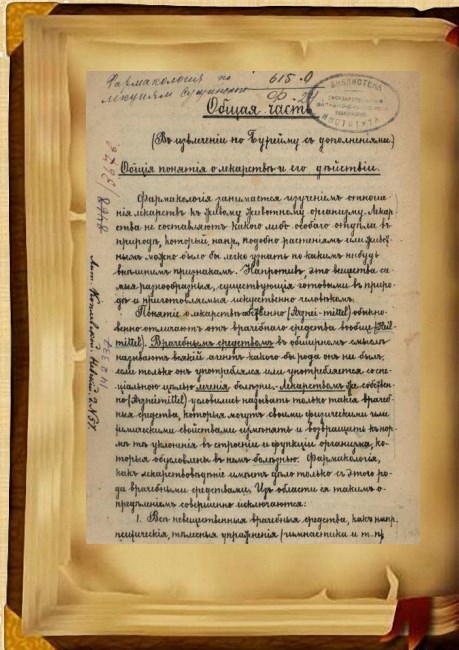 Фармакология по
лекциям Сушинскаго
615.0
Ф-24
БИБЛИОТЕКА
ГОСУДАРСТВЕННОГО
ИНСТИТУТА
Общая часть
(Въ извлеченіи по Бухгейму съ дополненіями)
Общія понятія о лекарствѣ и его дѣйствіи.
Фармакологія занимается изученіемъ отноше-
нія лекарствъ къ живому животному организму. Лекар-
ства не составляютъ какого либо особаго отдѣла въ
природѣ, который, напр., подобно растеніямъ или живот-
нымъ можно было бы легко узнать по какимъ нибудь
внѣшнимъ признакамъ. Напротивъ, это вещества са-
мыя разнообразныя, существующія готовыми въ приро-
дѣ и приготовляемыя искусственно человѣкомъ.
Понятіе о лекарствѣ собственно (Arznei-mittel) обыкно-
венно отличаютъ отъ врачебнаго средства вообще (Heil-
mittel). Врачебнымъ средствомъ въ обширномъ смыслѣ
называютъ всякій агентъ какого бы рода онъ ни былъ,
если только онъ употреблялся или употребляется со спе-
ціальною цѣлью лѣченія болѣзни. Лекарствомъ же собствен-
но (Arzneimittel) условились называть только такія врачеб-
ныя средства, которыя могутъ своими физическими или
химическими свойствами измѣнять и возвращать къ нор-
мѣ тѣ уклоненія въ строеніи и функціи организма, ко-
торыя обусловлены въ немъ болѣзнью. Фармакологія,
какъ лекарствовѣдѣніе имѣетъ дѣло только съ этого ро-
да врачебными средствами. Изъ области ея такимъ о-
предѣленіемъ совершенно исключаются:
1. Всѣ невещественныя врачебныя средства, какъ напр.
психическія, тѣлесныя упражненія (гимнастика и т. п.)